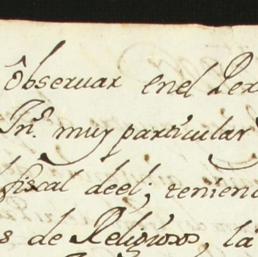 Observar enel Per
Jnº muy particular
fiscal deel; tenien
s de Religiosos, la